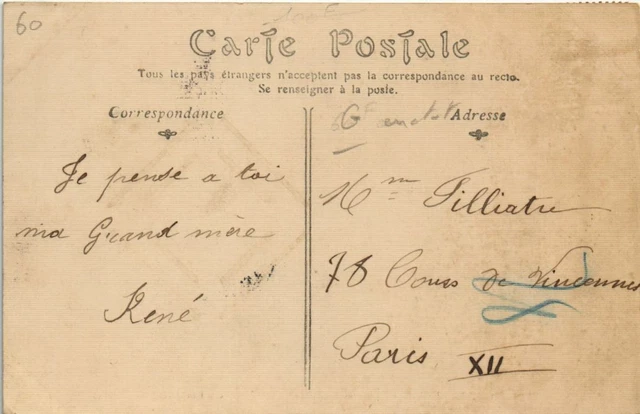 60
Carte Postale
Tous les pays étrangers n'acceptent pas la correspondance au recto.
Se renseigner à la poste.
Correspondance
Adresse
Je pense a toi
ma Grand mère
René
Mme Filliatre
78 Cours de Vincennes
Paris XII